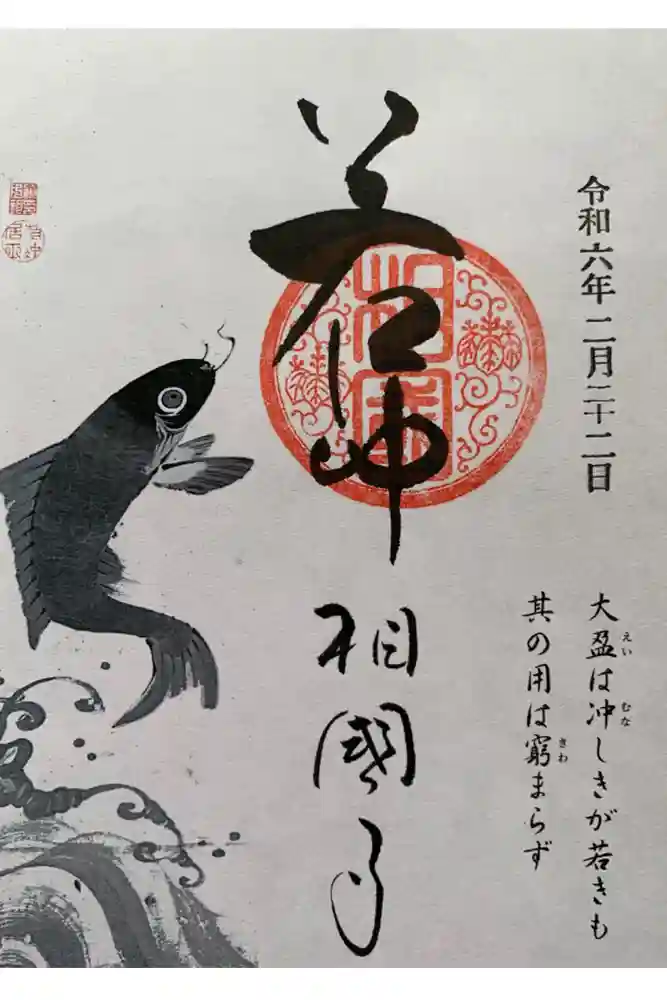 令和六年二月二十二日
大盈は冲しきが若きも
えい
むな
其の用は窮まらず
きわ
若冲
相国
相國寺